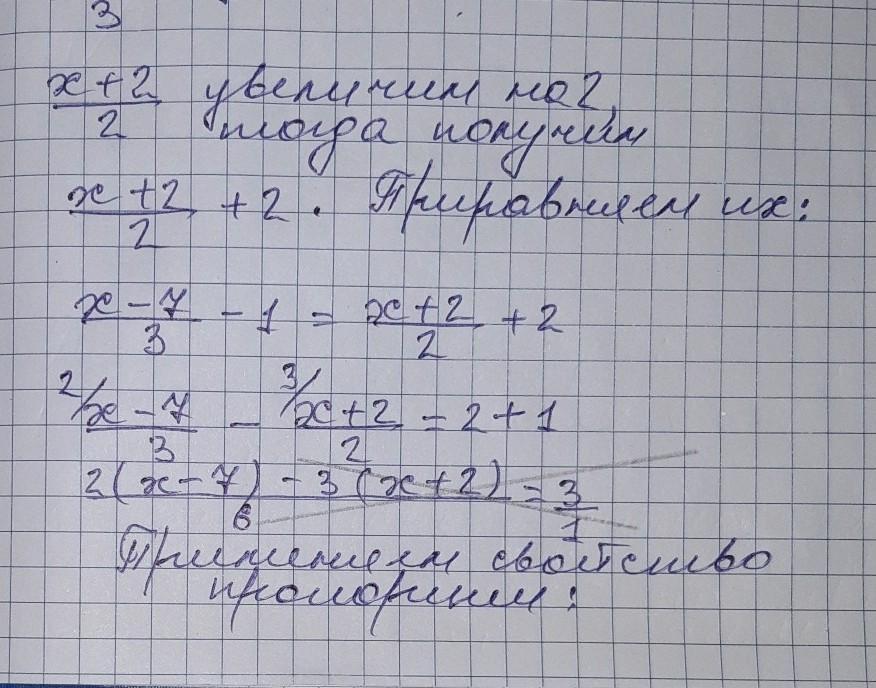 3
x+2/2 увеличим на 2,
тогда получим
x+2/2 + 2. Приравняем их:
x-7/3 - 1 = x+2/2 + 2
2/ x-7/3 - 3/ x+2/2 = 2+1
2(x-7) - 3(x+2)/6 = 3/1
Применяем свойство
пропорции: